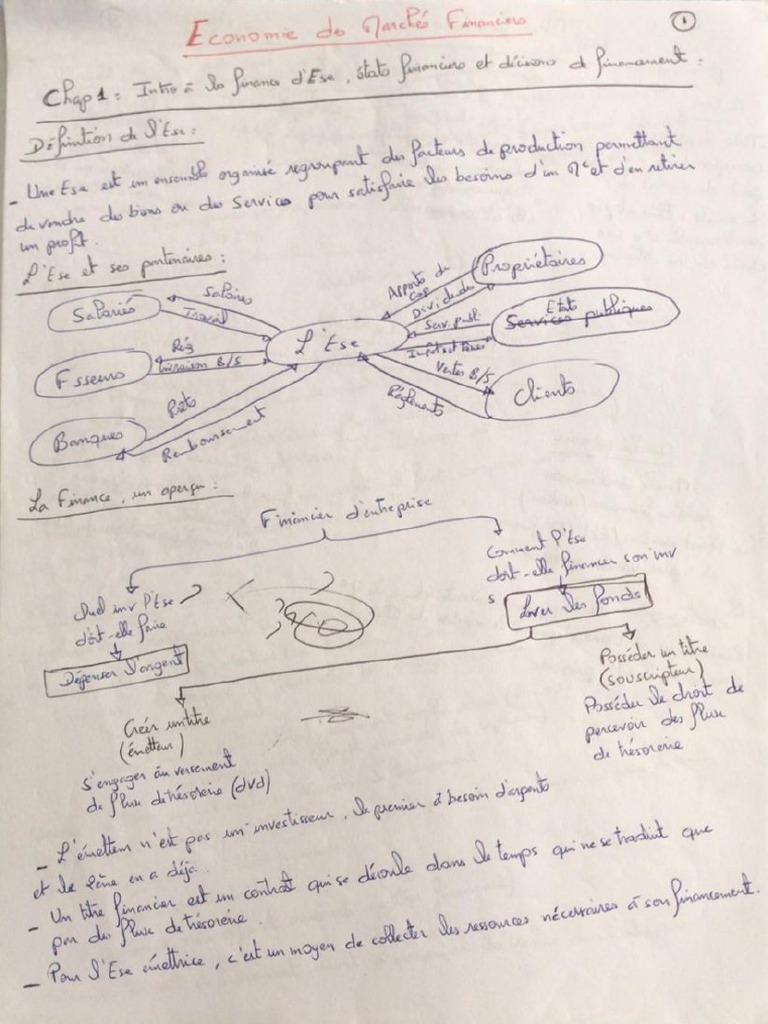 1
Economie des Marchés Financiers
Chap 1 : Intro à la finance d'Ese, états financiers et décisions de financement :
Définition de l'Ese :
- Une Ese est un ensemble organisé regroupant des facteurs de production permettant
de vendre des biens ou des services pour satisfaire les besoins d'un Mé et d'en retirer
un profit.
L'Ese et ses partenaires :
Salariés
Salaires
Travail
Fsseurs
Rég
Livraison B/S
Banques
Prêts
Remboursement
L'Ese
Apports de
cap
Dividendes
Propriétaires
Serv. publ
Impôts et taxes
Etats
Services publiques
Ventes B/S
Règlements
Clients
La Finance, un aperçu :
Financier d'entreprise
Quel inv l'Ese
doit-elle faire
?
Dépenser d'argent
Comment l'Ese
doit-elle financer son inv
s
Lever des fonds
Créer un titre
(émetteur)
s'engager au versement
de flux de trésorerie (dvd)
Posséder un titre
(souscripteur)
Posséder le droit de
percevoir des flux
de trésorerie
- L'émetteur n'est pas un investisseur, le premier à besoin d'argents
et le 2ème en a déjà.
- Un titre financier est un contrat qui se déroule dans le temps qui ne se traduit que
par des flux de trésorerie.
- Pour l'Ese émettrice, c'est un moyen de collecter les ressources nécessaires à son financement.